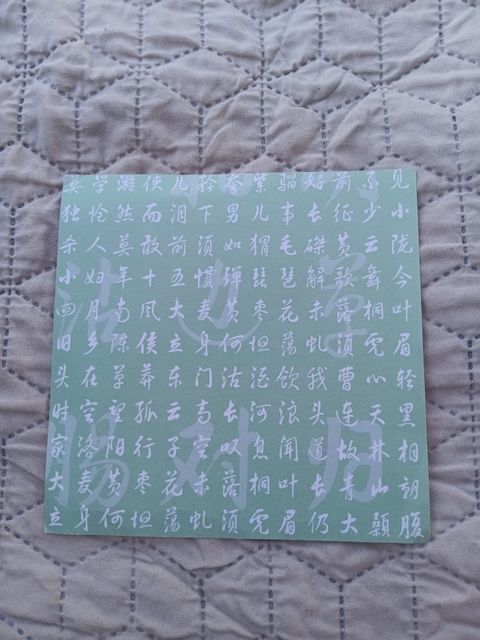 莫学游侠儿矜夸紫骝好前不见
独怆然而泪下男儿事长征少小
杀人莫敢前须如猬毛磔黄云陇
小妇年十五惯弹琵琶解歌舞今
四月南风大麦黄枣花未落桐叶
旧乡陈侯立身何坦荡虬须虎眉
头在草莽东门沽酒饮我曹心轻
时空望孤云高长河浪头连天黑
家洛阳行子空叹息闻道故林相
大麦黄枣花未落桐叶长青山朝
立身何坦荡虬须虎眉仍大颡腹
沽边草
肠对归